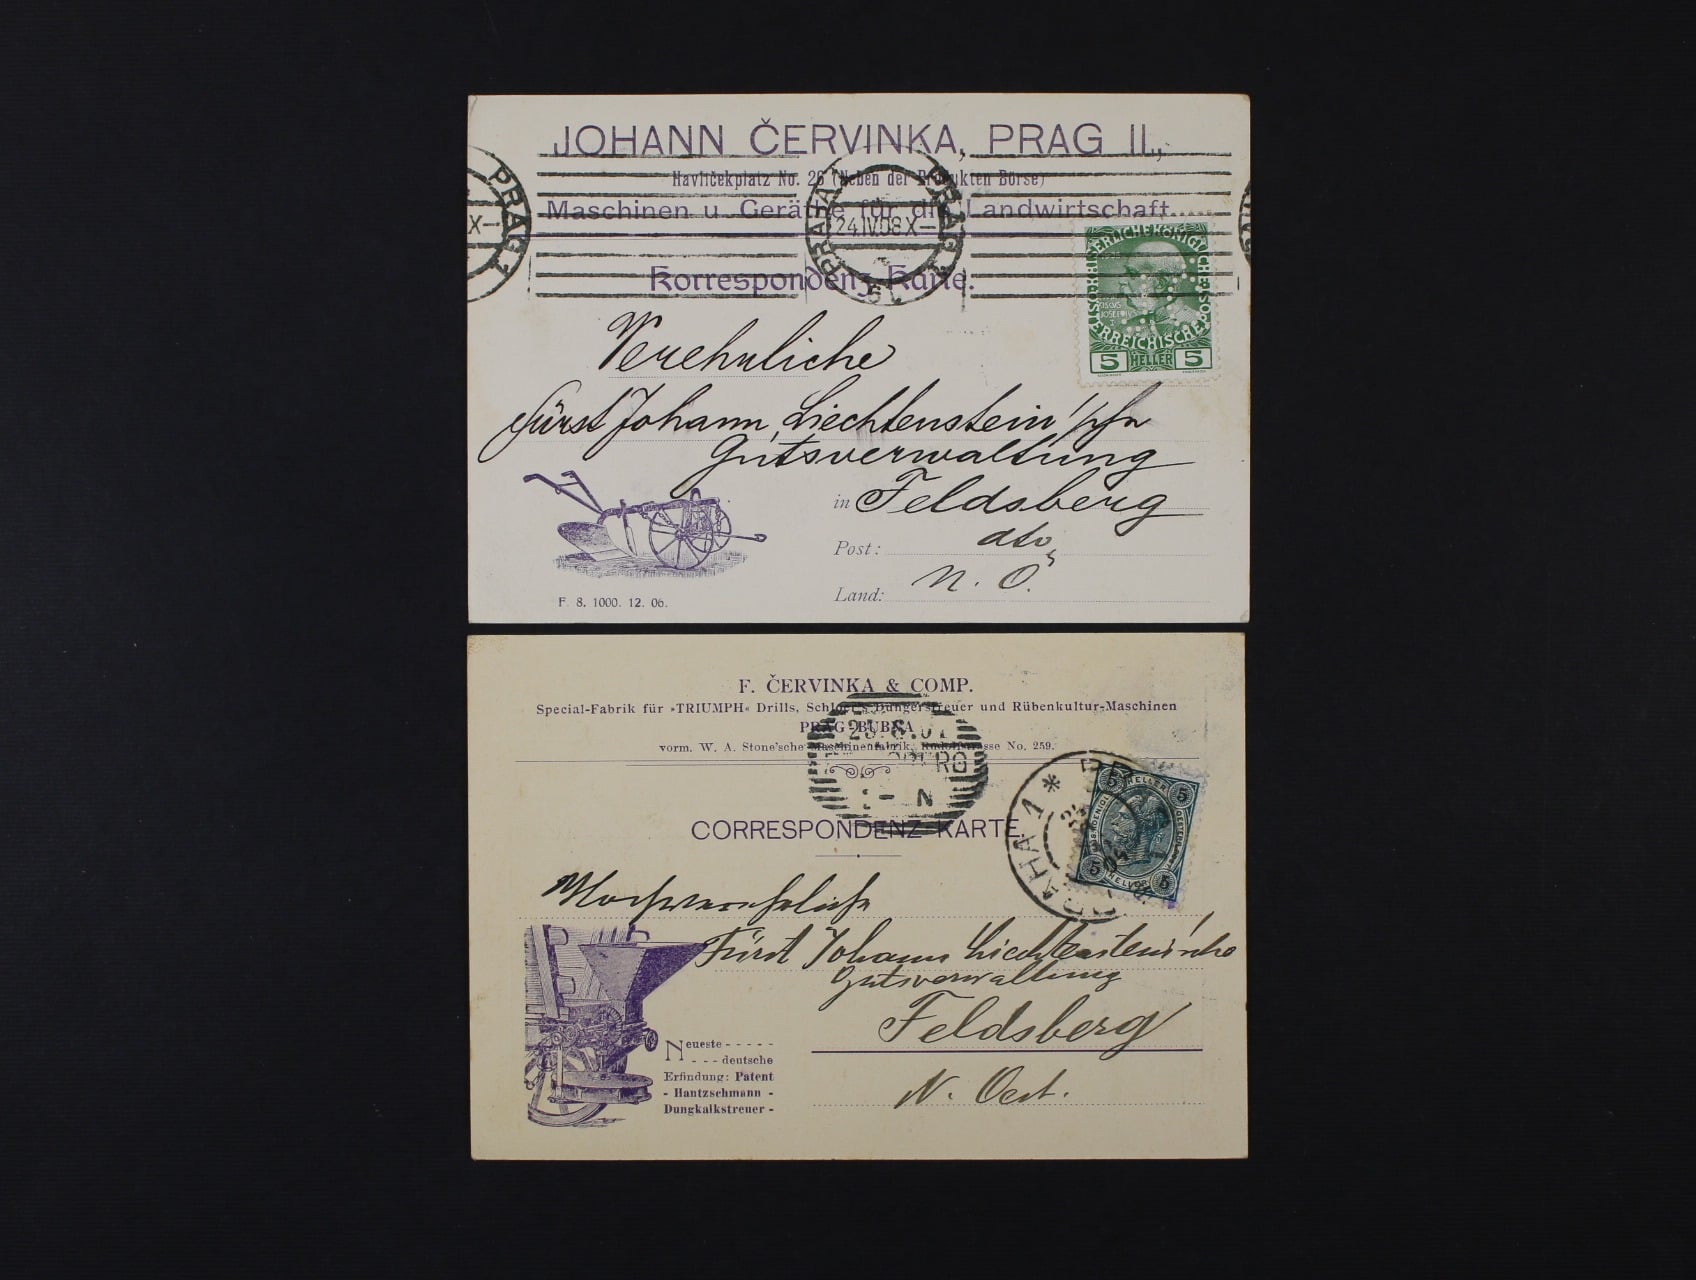 JOHANN ČERVINKA, PRAG II.,
Havlíčekplatz No. 26 (Neben der Produkten Börse)
Maschinen u. Geräthe für die Landwirtschaft
PRAG 1
X-
PRAHA 1 PRAG 1
24.IV.08 X-
Korrespondenz-Karte.
KAISERLICHE KÖNIGLICHE ÖSTERREICHISCHE
5 HELLER 5
Fürst Johann Liechtenstein'sche
Gutsverwaltung
in Feldsberg
Post: dto
Land: N. Ö.
F. 8. 1000. 12. 06.
F. ČERVINKA & COMP.
Special-Fabrik für »TRIUMPH« Drills, Schlör's Düngerstreuer und Rübenkultur-Maschinen
PRAG-BUBNA
vorm. W. A. Stone'sche Maschinenfabrik, Rudolfgasse No. 259.
CORRESPONDENZ-KARTE.
PRAHA 1
5 HELLER 5
5 HELLER 5
Fürst Johann Liechtenstein'sche
Gutsverwaltung
Feldsberg
N. Oest.
Neueste - - - - -
- - - deutsche
Erfindung: Patent
- Hantzschmann -
Dungkalkstreuer -